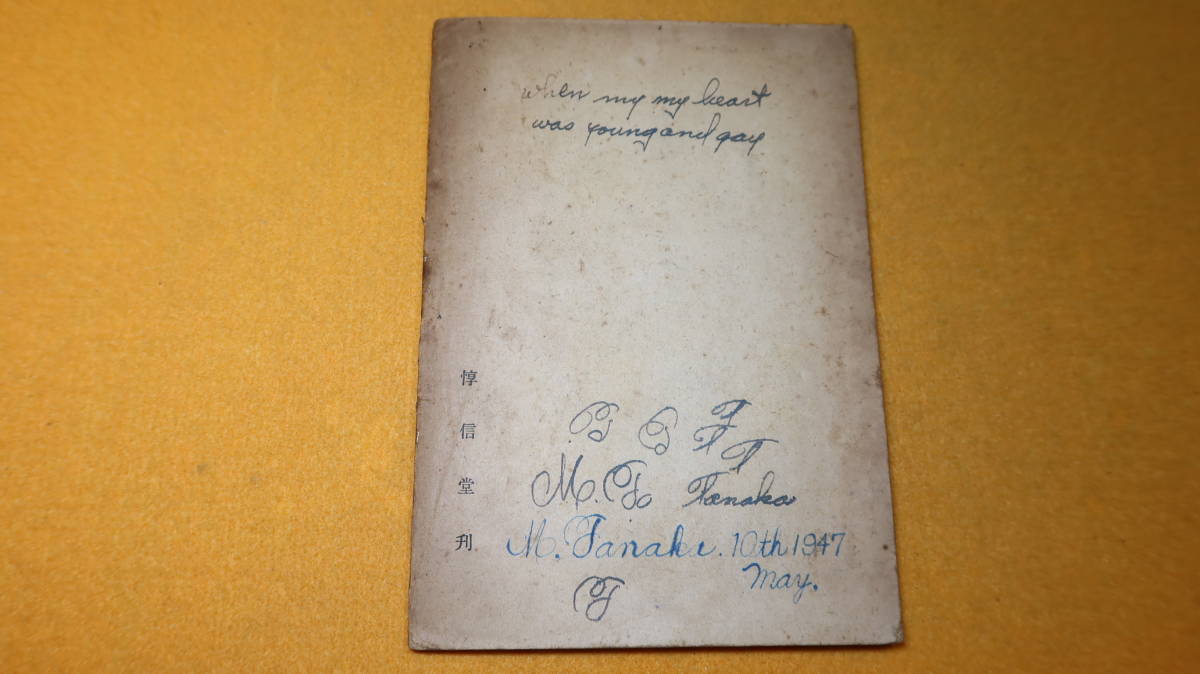 when my my heart
was young and gay
惇信堂刊
T T T
T
M. T. Tanaka
M. Tanaka. 10th 1947
May.
T